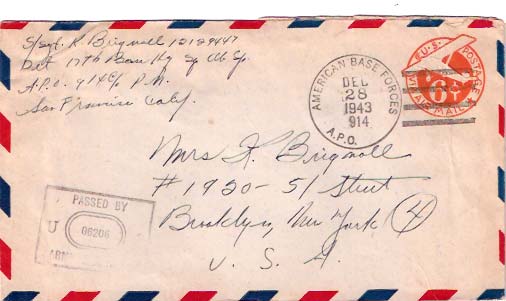 S/Sgt. K Brignoll 12129447
Det 17th Base Hq
A.P.O. 914 C/o P.M.
San Francisco Calif.
AMERICAN BASE FORCES
DEC
28
1943
914
A.P.O.
U.S. POSTAGE
6¢
VIA AIR MAIL
Mrs K. Brignoll
#1920-51 Street
Brooklyn, New York (4)
U. S. A.
PASSED BY
U
06206
ARMY